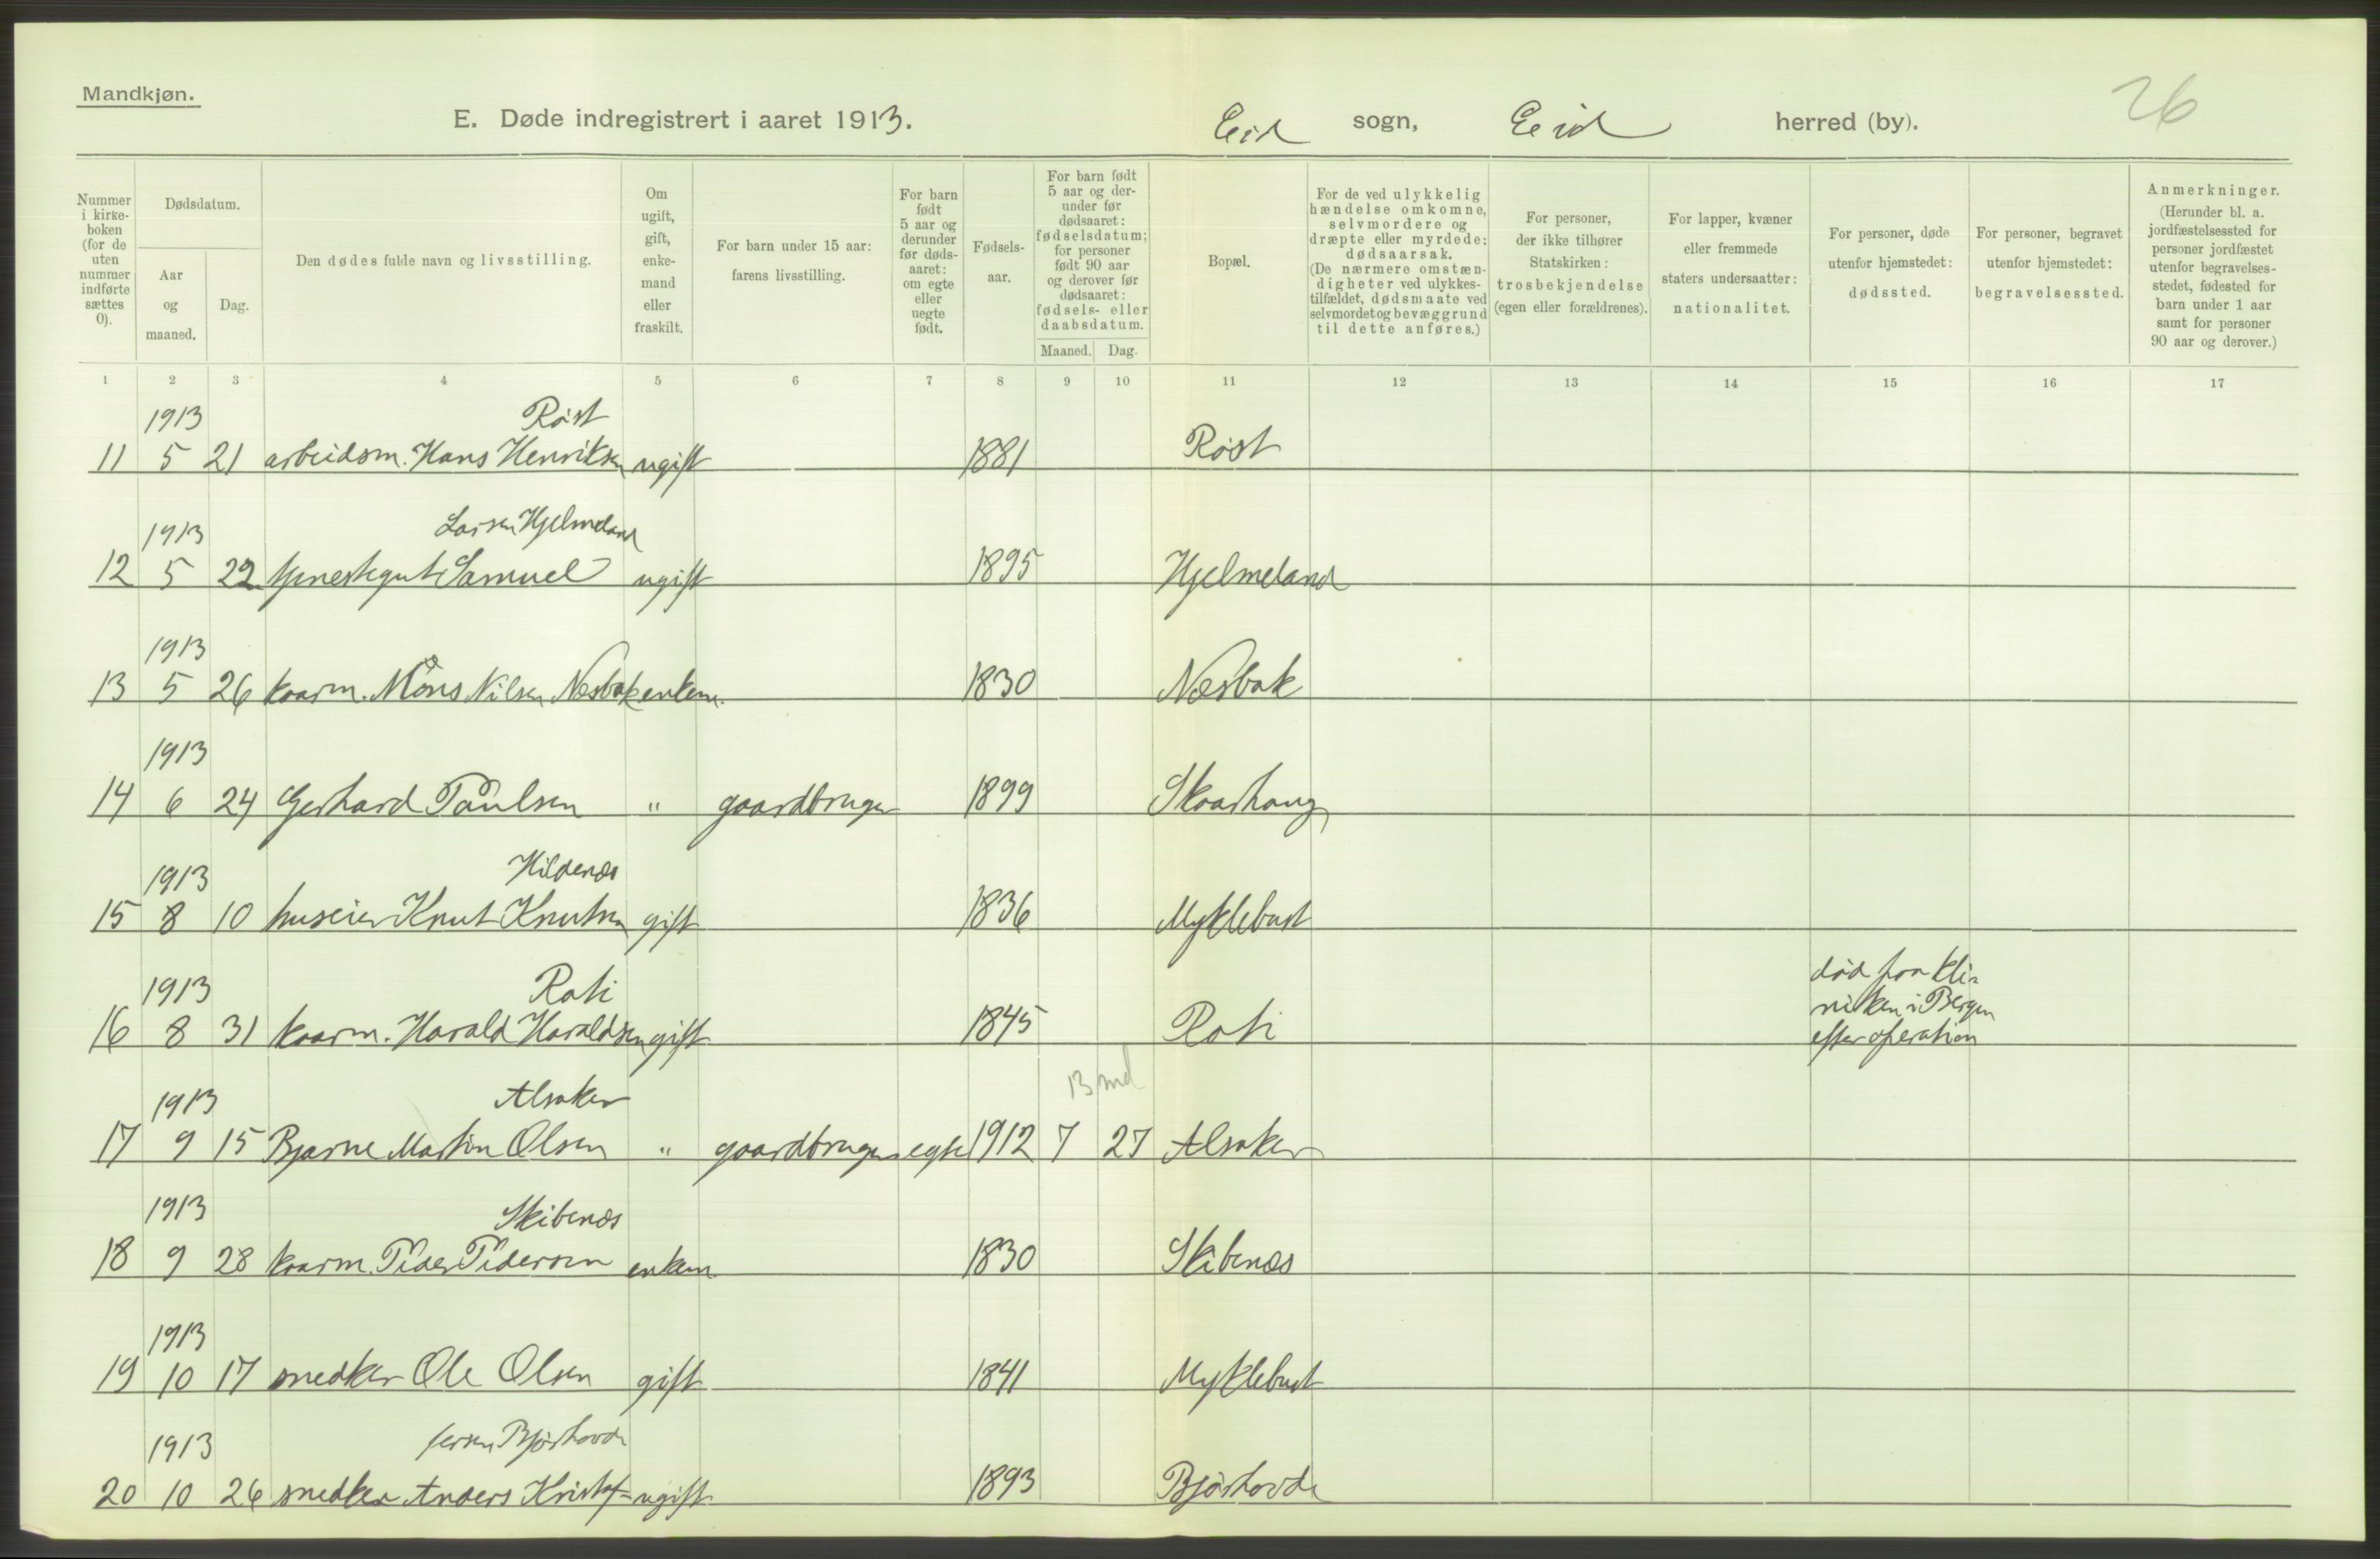 Mandkjøn.
26
E. Døde indregistrert i aaret 1913. Eid sogn, Eid herred (by).
Nummer i kirkeboken (for de uten nummer indførte sættes 0).
Dødsdatum.
Aar og maaned.
Dag.
Den dødes fulde navn og livsstilling.
Om ugift, gift, enkemand eller fraskilt.
For barn under 15 aar: farens livsstilling.
For barn født 5 aar og derunder før dødsaaret: om egte eller uegte født.
Fødselsaar.
For barn født 5 aar og derunder før dødsaaret: fødselsdatum; for personer født 90 aar og derover før dødsaaret: fødsels- eller daabsdatum.
Maaned. Dag.
Bopæl.
For de ved ulykkelig hændelse omkomne, selvmordere og dræpte eller myrdede: dødsaarsak. (De nærmere omstændigheter ved ulykkestilfældet, dødsmaate ved selvmordet og bevæggrund til dette anføres.)
For personer, der ikke tilhører Statskirken: trosbekjendelse (egen eller forældrenes).
For lapper, kvæner eller fremmede staters undersaatter: nationalitet.
For personer, døde utenfor hjemstedet: dødssted.
For personer, begravet utenfor hjemstedet: begravelsessted.
Anmerkninger. (Herunder bl. a. jordfæstelsessted for personer jordfæstet utenfor begravelsesstedet, fødested for barn under 1 aar samt for personer 90 aar og derover.)
1 2 3 4 5 6 7 8 9 10 11 12 13 14 15 16 17
1913 Røst
11 5 21 arbeidsm. Hans Henriksen ugift 1881 Røst
1913 Larsen Hjelmeland
12 5 22 tjenestegut Samuel ugift 1895 Hjelmeland
1913
13 5 26 kaarm. Mons Nilsen Nesbak enkem. 1830 Nesbak
1913
14 6 24 Gerhard Paulsen " gaardbruger 1899 Skaarhaug
1913 Hildenæs
15 8 10 huseier Knut Knutsen gift 1836 Myklebust
1913 Roti
16 8 31 kaarm. Harald Haraldsen gift 1845 Roti død paa kli-
niken i Bergen
efter operation
13 md
1913 Alsaker
17 9 15 Bjarne Martin Olsen " gaardbruger egte 1912 7 27 Alsaker
1913 Skibenæs
18 9 28 kaarm. Peder Pedersen enkem 1830 Skibenæs
1913
19 10 17 snedker Ole Olsen gift 1841 Myklebust
1913 fersen Bjørhovde
20 10 26 snedker Anders Kristof= ugift 1893 Bjørhovde